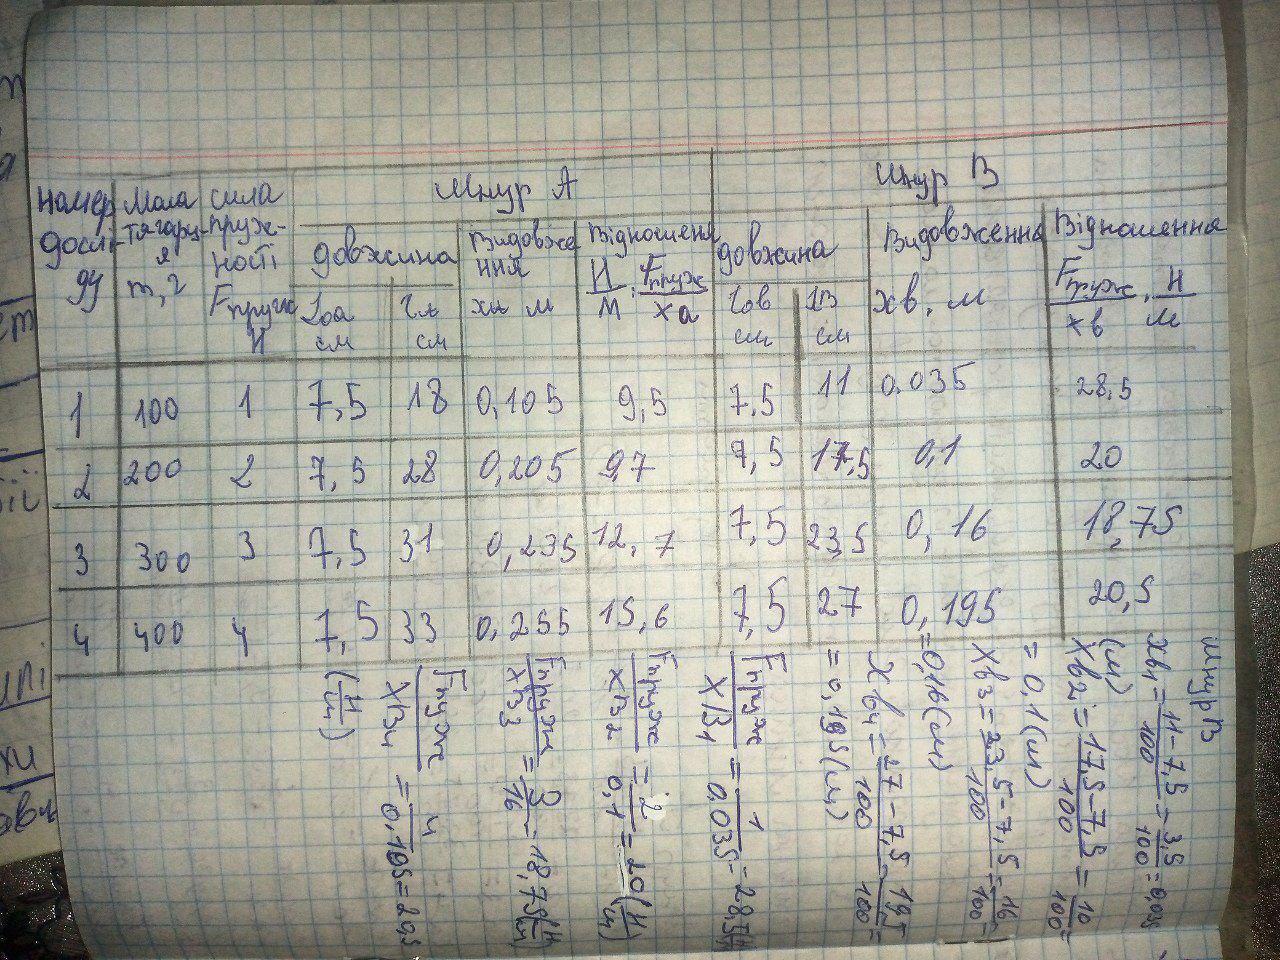 номер досліду
Маса тягарця m, г
сила пружності Fпружн Н
Шнур А
Шнур В
довжина
Видовження xа м
Відношення Н/м; Fпруж/xа
довжина
Видовження xв, м
Відношення Fпруж/xв, Н/м
l0а см
lа см
l0в см
lв см
1 100 1 7,5 18 0,105 9,5 7,5 11 0.035 28,5
2 200 2 7,5 28 0,205 9,7 7,5 17,5 0,1 20
3 300 3 7,5 31 0,235 12,7 7,5 23,5 0,16 18,75
4 400 4 7,5 33 0,255 15,6 7,5 27 0,195 20,5
шнур В
xв1 = 11-7,5/100 = 3,5/100 = 0,035
(м)
xв2 = 17,5-7,5/100 = 10/100 =
= 0,1 (м)
xв3 = 23,5-7,5/100 = 16/100 =
= 0,16 (м)
xв4 = 27-7,5/100 = 19,5/100 =
= 0,195 (м)
Fпруж/xв1 = 1/0,035 = 28,5 Н/м
Fпруж/xв2 = 2/0,1 = 20 (Н/м)
Fпруж/xв3 = 3/16 = 18,75 (Н/м)
Fпруж/xв4 = 4/0,195 = 20,5
(Н/м)